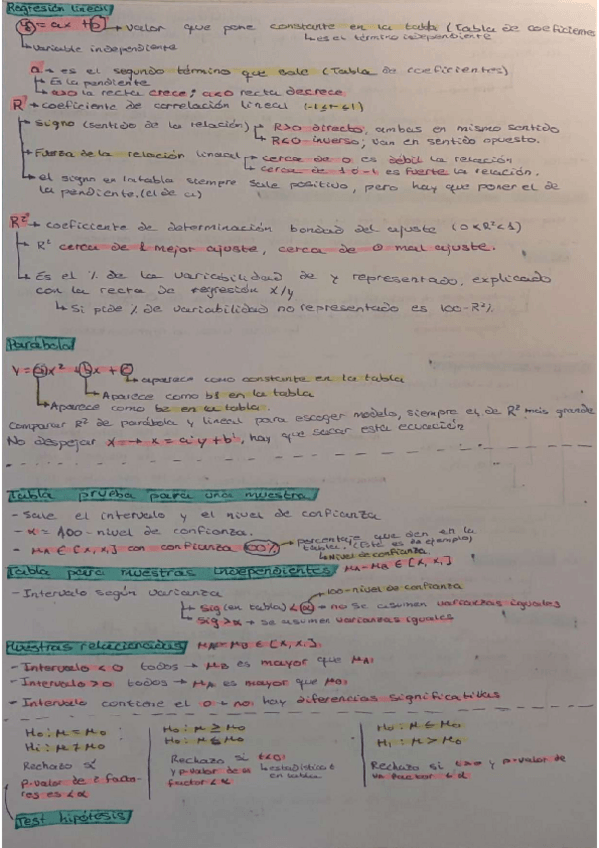 Regresión lineal
y = ax + b → valor que pone constante en la tabla (Tabla de coeficientes
↳ es el término independiente
↳ variable independiente
a → es el segundo término que sale (Tabla de coeficientes)
↳ Es la pendiente
↳ a>0 la recta crece; a<0 recta decrece
R → coeficiente de correlación lineal (-1≤r≤1)
↳ signo (sentido de la relación) R>0 directo, ambas en mismo sentido
R<0 inverso, van en sentido opuesto.
↳ Fuerza de la relación lineal cerca de 0 es débil la relación
cerca de 1 o -1 es fuerte la relación.
↳ el signo en la tabla siempre sale positivo, pero hay que poner el de
la pendiente. (el de a)
R² → coeficiente de determinación bondad del ajuste (0<R²<1)
↳ R² cerca de 1 mejor ajuste, cerca de 0 mal ajuste.
↳ Es el % de la variabilidad de y representado, explicado
con la recta de regresión x/y
↳ Si pide % de variabilidad no representado es 100-R²%
Parábola
y = ax² + bx + c
↳ aparece como constante en la tabla
↳ Aparece como b1 en la tabla
↳ Aparece como b2 en la tabla.
Comparar R² de parábola y lineal para escoger modelo, siempre el de R² más grande
No despejar x → x = a'y + b', hay que sacar esta ecuación
Tabla prueba para una muestra
- Sale el intervalo y el nivel de confianza
- α = 100 - nivel de confianza.
- μA ∈ [x, x] con confianza 100% → porcentaje que den en la
tabla. (Este es de ejemplo)
↳ Nivel de confianza
Tabla para muestras independientes μA-μB ∈ [x, x]
- Intervalo según varianza
100-nivel de confianza
↳ sig (en tabla) < α → no se asumen varianzas iguales
↳ sig > α → se asumen varianzas iguales
Muestras relacionadas μA-μB ∈ [x, x]
- Intervalo < 0 todos → μB es mayor que μA
- Intervalo > 0 todos → μA es mayor que μB
- Intervalo contiene el 0 → no hay diferencias significativas
H0: μ = μ0 H0: μ ≥ μ0 H0: μ ≤ μ0
H1: μ ≠ μ0 H0: μ ≤ μ0 H1: μ > μ0
Rechazo si Rechazo si t<0 Rechazo si t>0 y p-valor de
p-valor de 2 facto- y p-valor de un ↳ estadístico un factor < α
res es < α factor < α en tabla
Test hipótesis